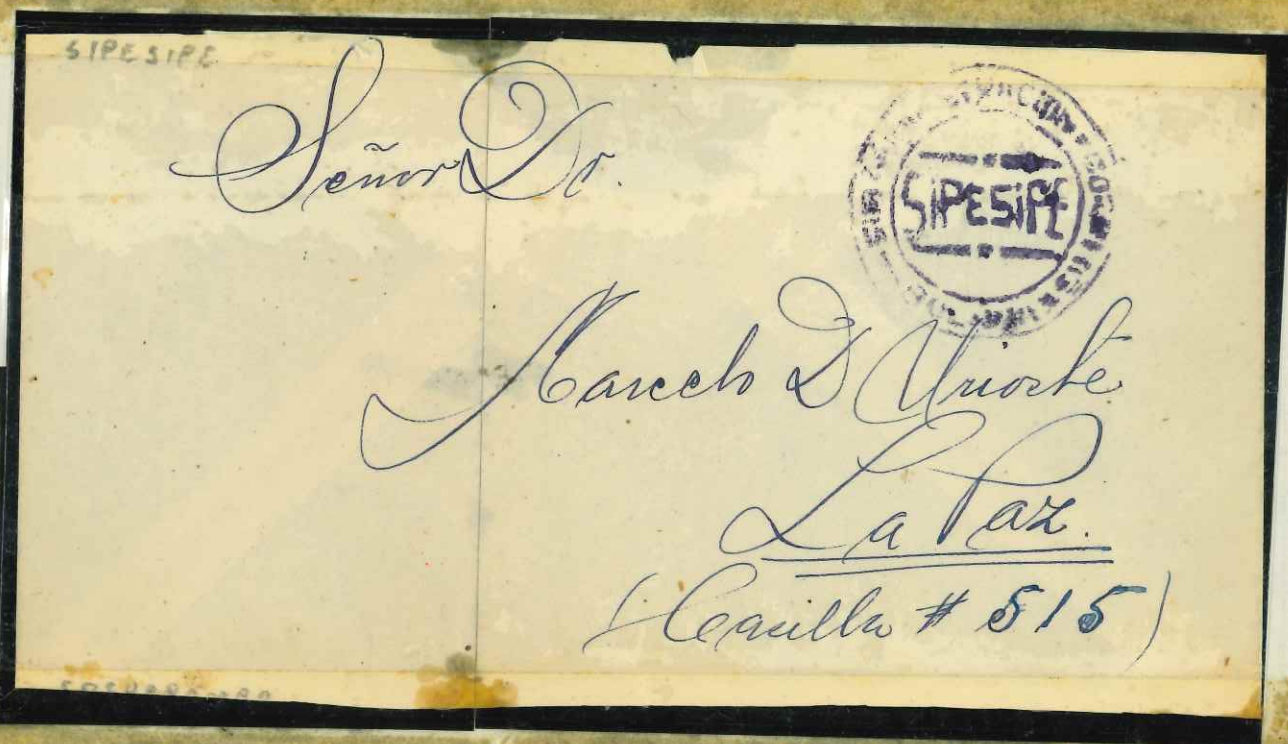 SIPESIPE
Señor Dr.
SIPESIPE
Marcelo D Urioste
La Paz.
(Casilla # 515)